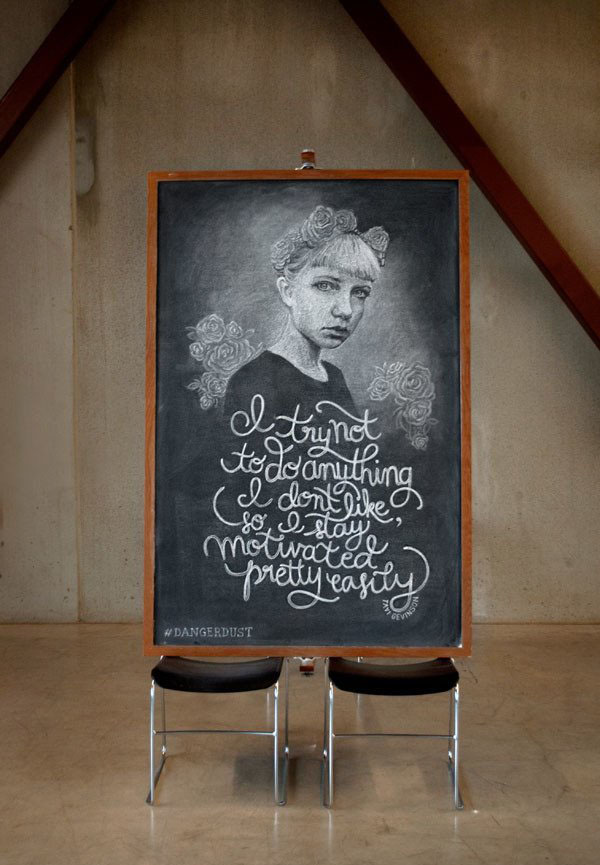 I try not
to do anything
I dont like,
so I stay
motivated
pretty easily
TAVI GEVINSON
#DANGERDUST